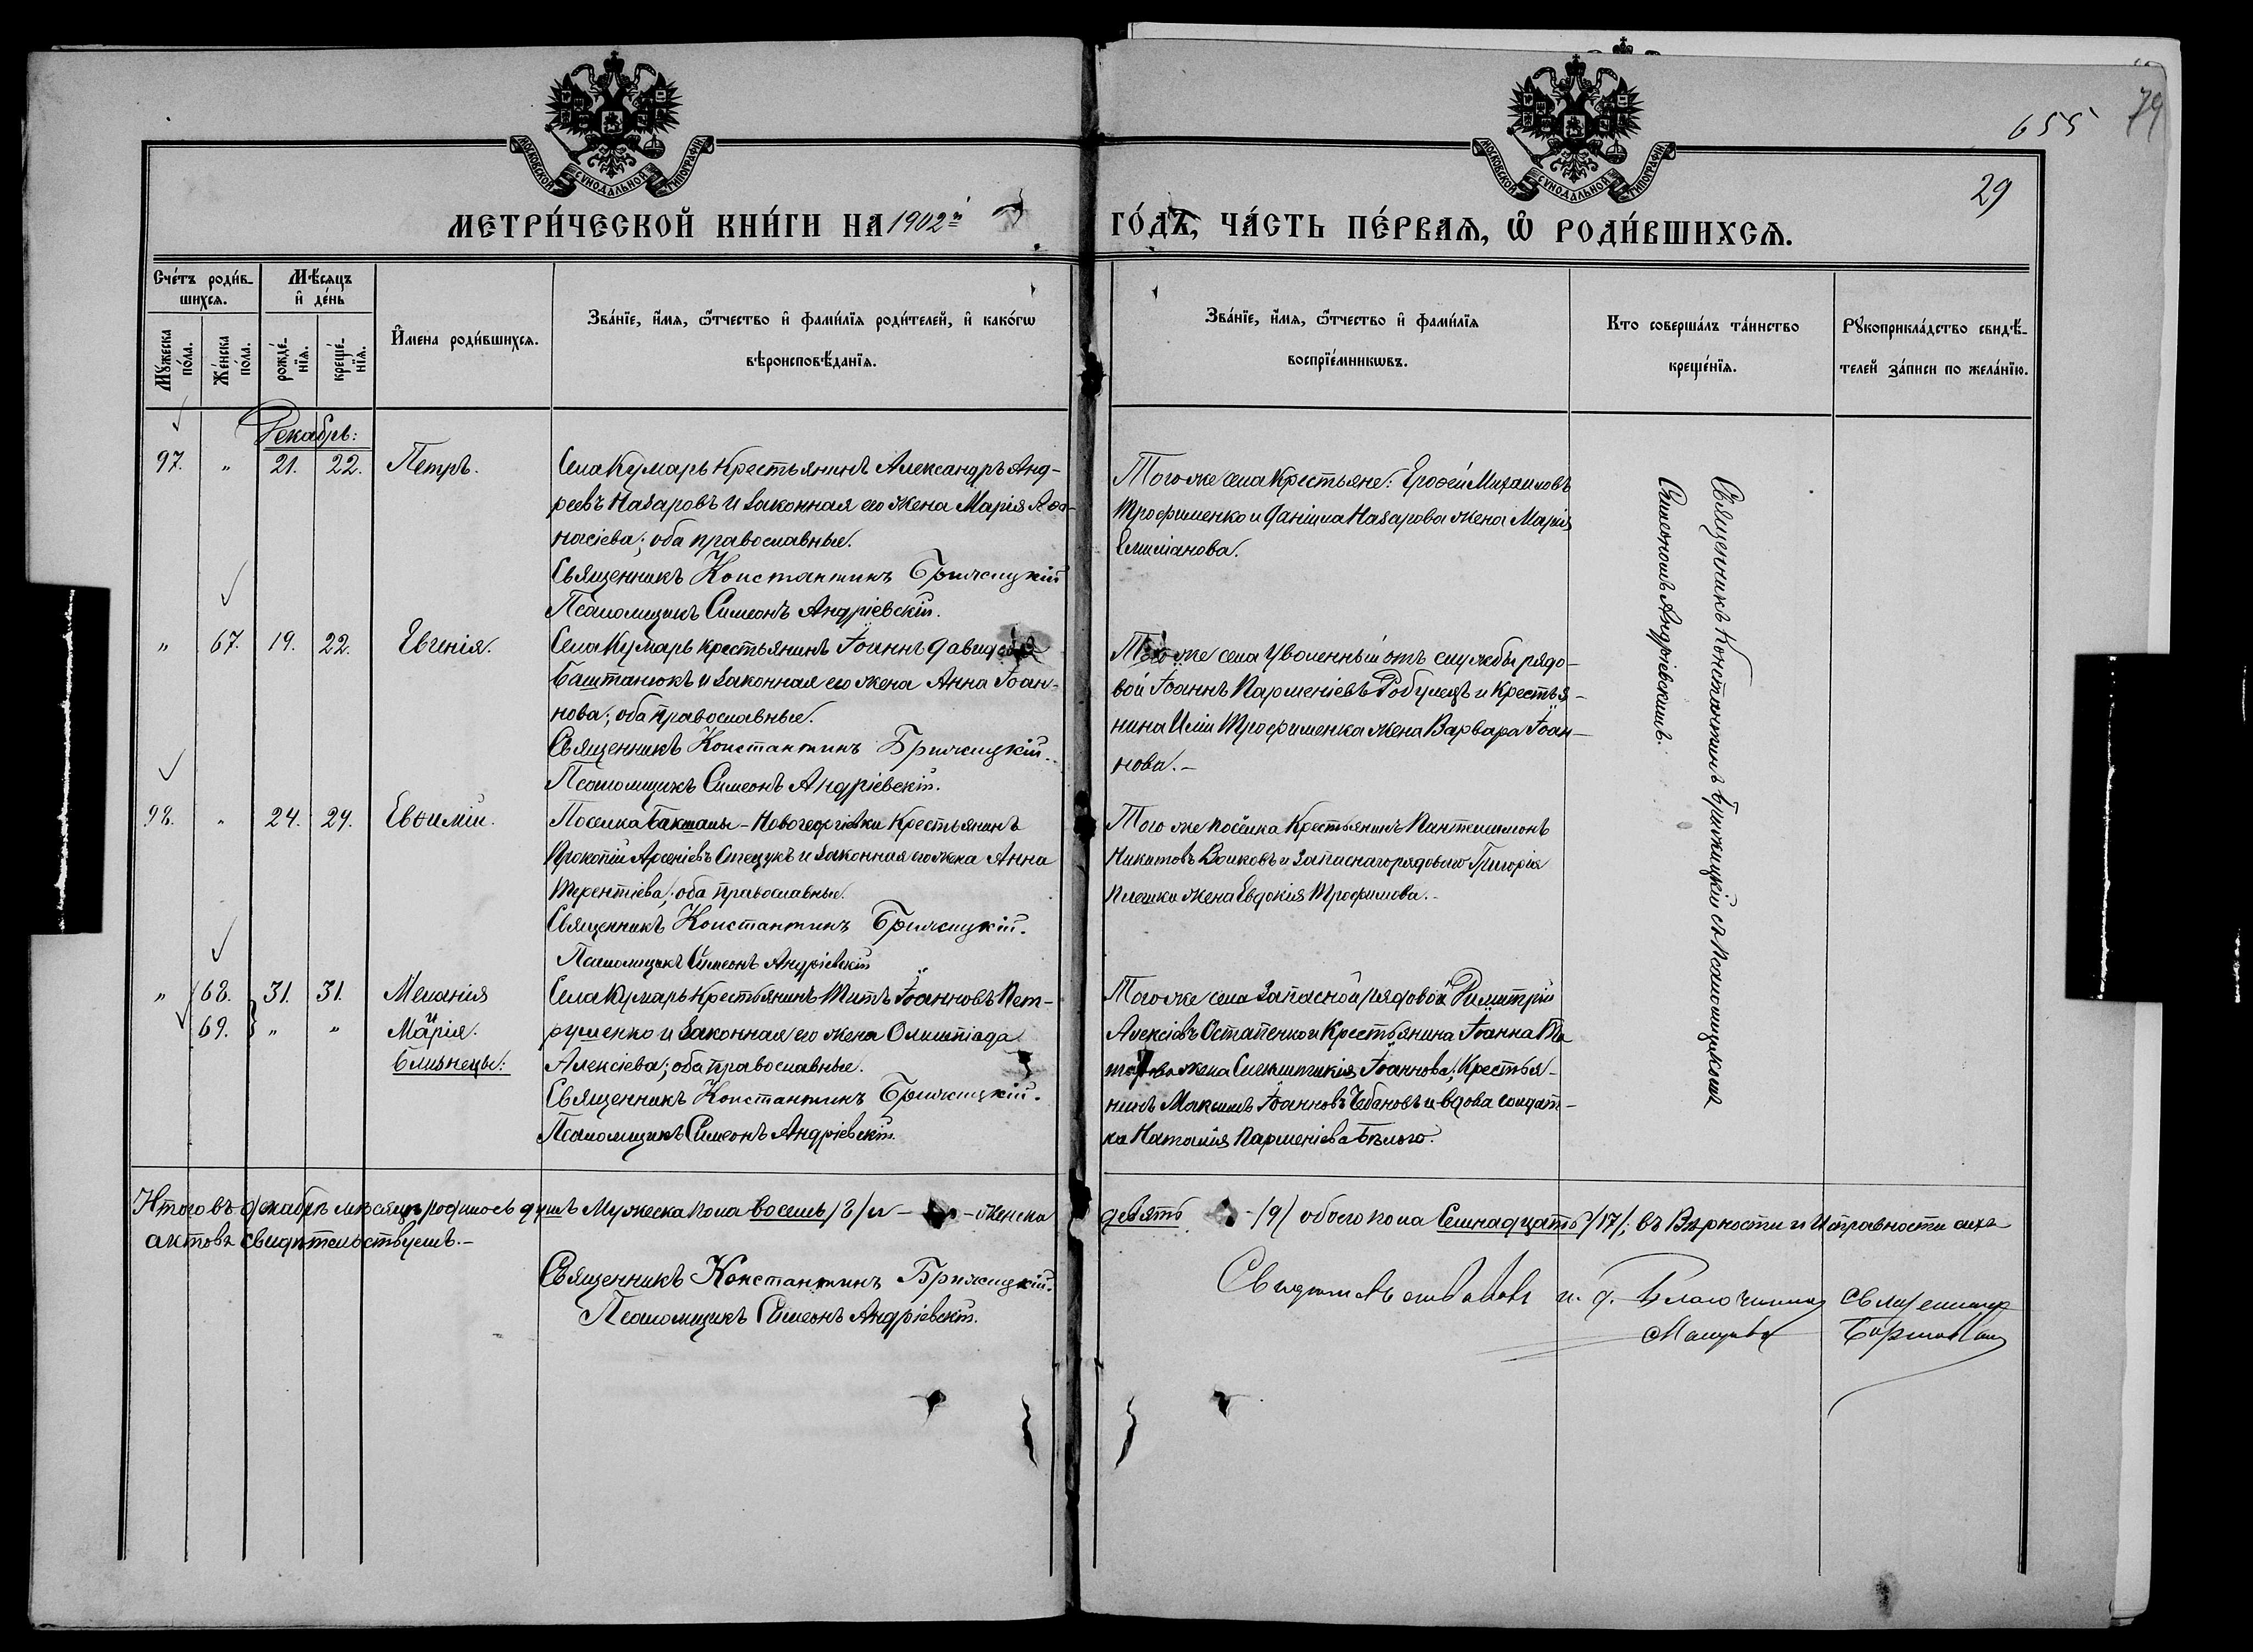 655
79
29
МОСКОВСКОЙ СѴНОДАЛЬНОЙ ТИПОГРАФІИ
МОСКОВСКОЙ СѴНОДАЛЬНОЙ ТИПОГРАФІИ
МЕТРИ́ЧЕСКОЙ КНИ́ГИ НА 1902й ГО́ДЪ, ЧА́СТЬ ПЕ́РВАѦ, Ѿ РОДИ́ВШИХСѦ.
Сче́тъ роди́в-
шихсѧ.
Мѣ́сѧцъ
и҆ де́нь
Мꙋ́жеска
по́ла.
Же́нска
по́ла.
рожде́-
нїѧ.
креще́-
нїѧ.
И҆мена роди́вшихсѧ.
Зва́нїе, и҆́мѧ, ѻ҆́тчество и҆ фами́лїѧ роди́телей, и҆ како́гѡ
вѣроисповѣ́данїѧ.
Зва́нїе, и҆́мѧ, ѻ҆́тчество и҆ фами́лїѧ
воспрїе́мникѡвъ.
Кто соверша́лъ та́инство
креще́нїѧ.
Рꙋкоприкла́дство свидѣ́-
телей за́писи по жела́нїю.
Декабрь:
97. „ 21. 22. Петръ.
Села Кумарь Крестьянинъ Александръ Анд-
реевъ Назаровъ и законная его жена Марія Аѳа-
насіева; оба православные.
Священникъ Константинъ Брижицкій
Псаломщикъ Симеонъ Андріевскій.
Того же села Крестьяне: Ероѳей Михаиловъ
Трофименко и Даніила Назарова жена Марія
Емиліанова.
„ 67. 19. 22. Евгенія.
Села Кумарь крестьянинъ Іоаннъ Давидовъ
Баштанюкъ и законная его жена Анна Іоан-
нова; оба православные.
Священникъ Константинъ Брижицкій.
Псаломщикъ Симеонъ Андріевскій.
Того же села Уволенный отъ службы рядо-
вой Іоаннъ Парменіевъ и Крестья-
нина Иліи Трофименка жена Варвара Іоан-
нова.-
98. „ 24. 29. Евѳимій.
Поселка Бакшалы-Новогеоргіевки Крестьянинъ
Прокопій Арсеніевъ Стецукъ и законная его жена Анна
Терентіева; оба православные.
Священникъ Константинъ Брижицкій.
Псаломщикъ Симеонъ Андріевскій
Того же посёлка Крестьянинъ Пантелимонъ
Никитовъ Волковъ и запаснаго рядового Григорія
жена Евдокія Трофимова.-
„ 68. 31. 31. Меланія
69. „ „ и Марія.
близнецы:
Села Кумарь Крестьянинъ Титъ Іоанновъ Пет-
рушенко и законная его жена Олимпіада
Алексіева; оба православные.
Священникъ Константинъ Брижицкій.
Псаломщикъ Симеонъ Андріевскій.
Того же села запасной рядовой Димитрій
Алексіевъ Остапенко и Крестьянина Іоанна
жена Іоаннова; Крестья-
нинъ Максимъ Іоанновъ Чебановъ и вдова солдат-
ка Наталія Парменіева Бѣлого.
Священникъ Константинъ Брижицкій съ Псаломщикомъ
Симеономъ Андріевскимъ.
Итого въ декабрѣ мѣсяцѣ родилось душъ Мужеска пола восемь /8/ и - женска девять /9/ обоего пола Семнадцать /17/; въ Вѣрности и Исправности сихъ
актовъ свидѣтельствуемъ.-
Священникъ Константинъ Брижицкій.
Псаломщикъ Симеонъ Андріевскій.
Свидѣтельствовалъ и. д. Благочиннаго священникъ